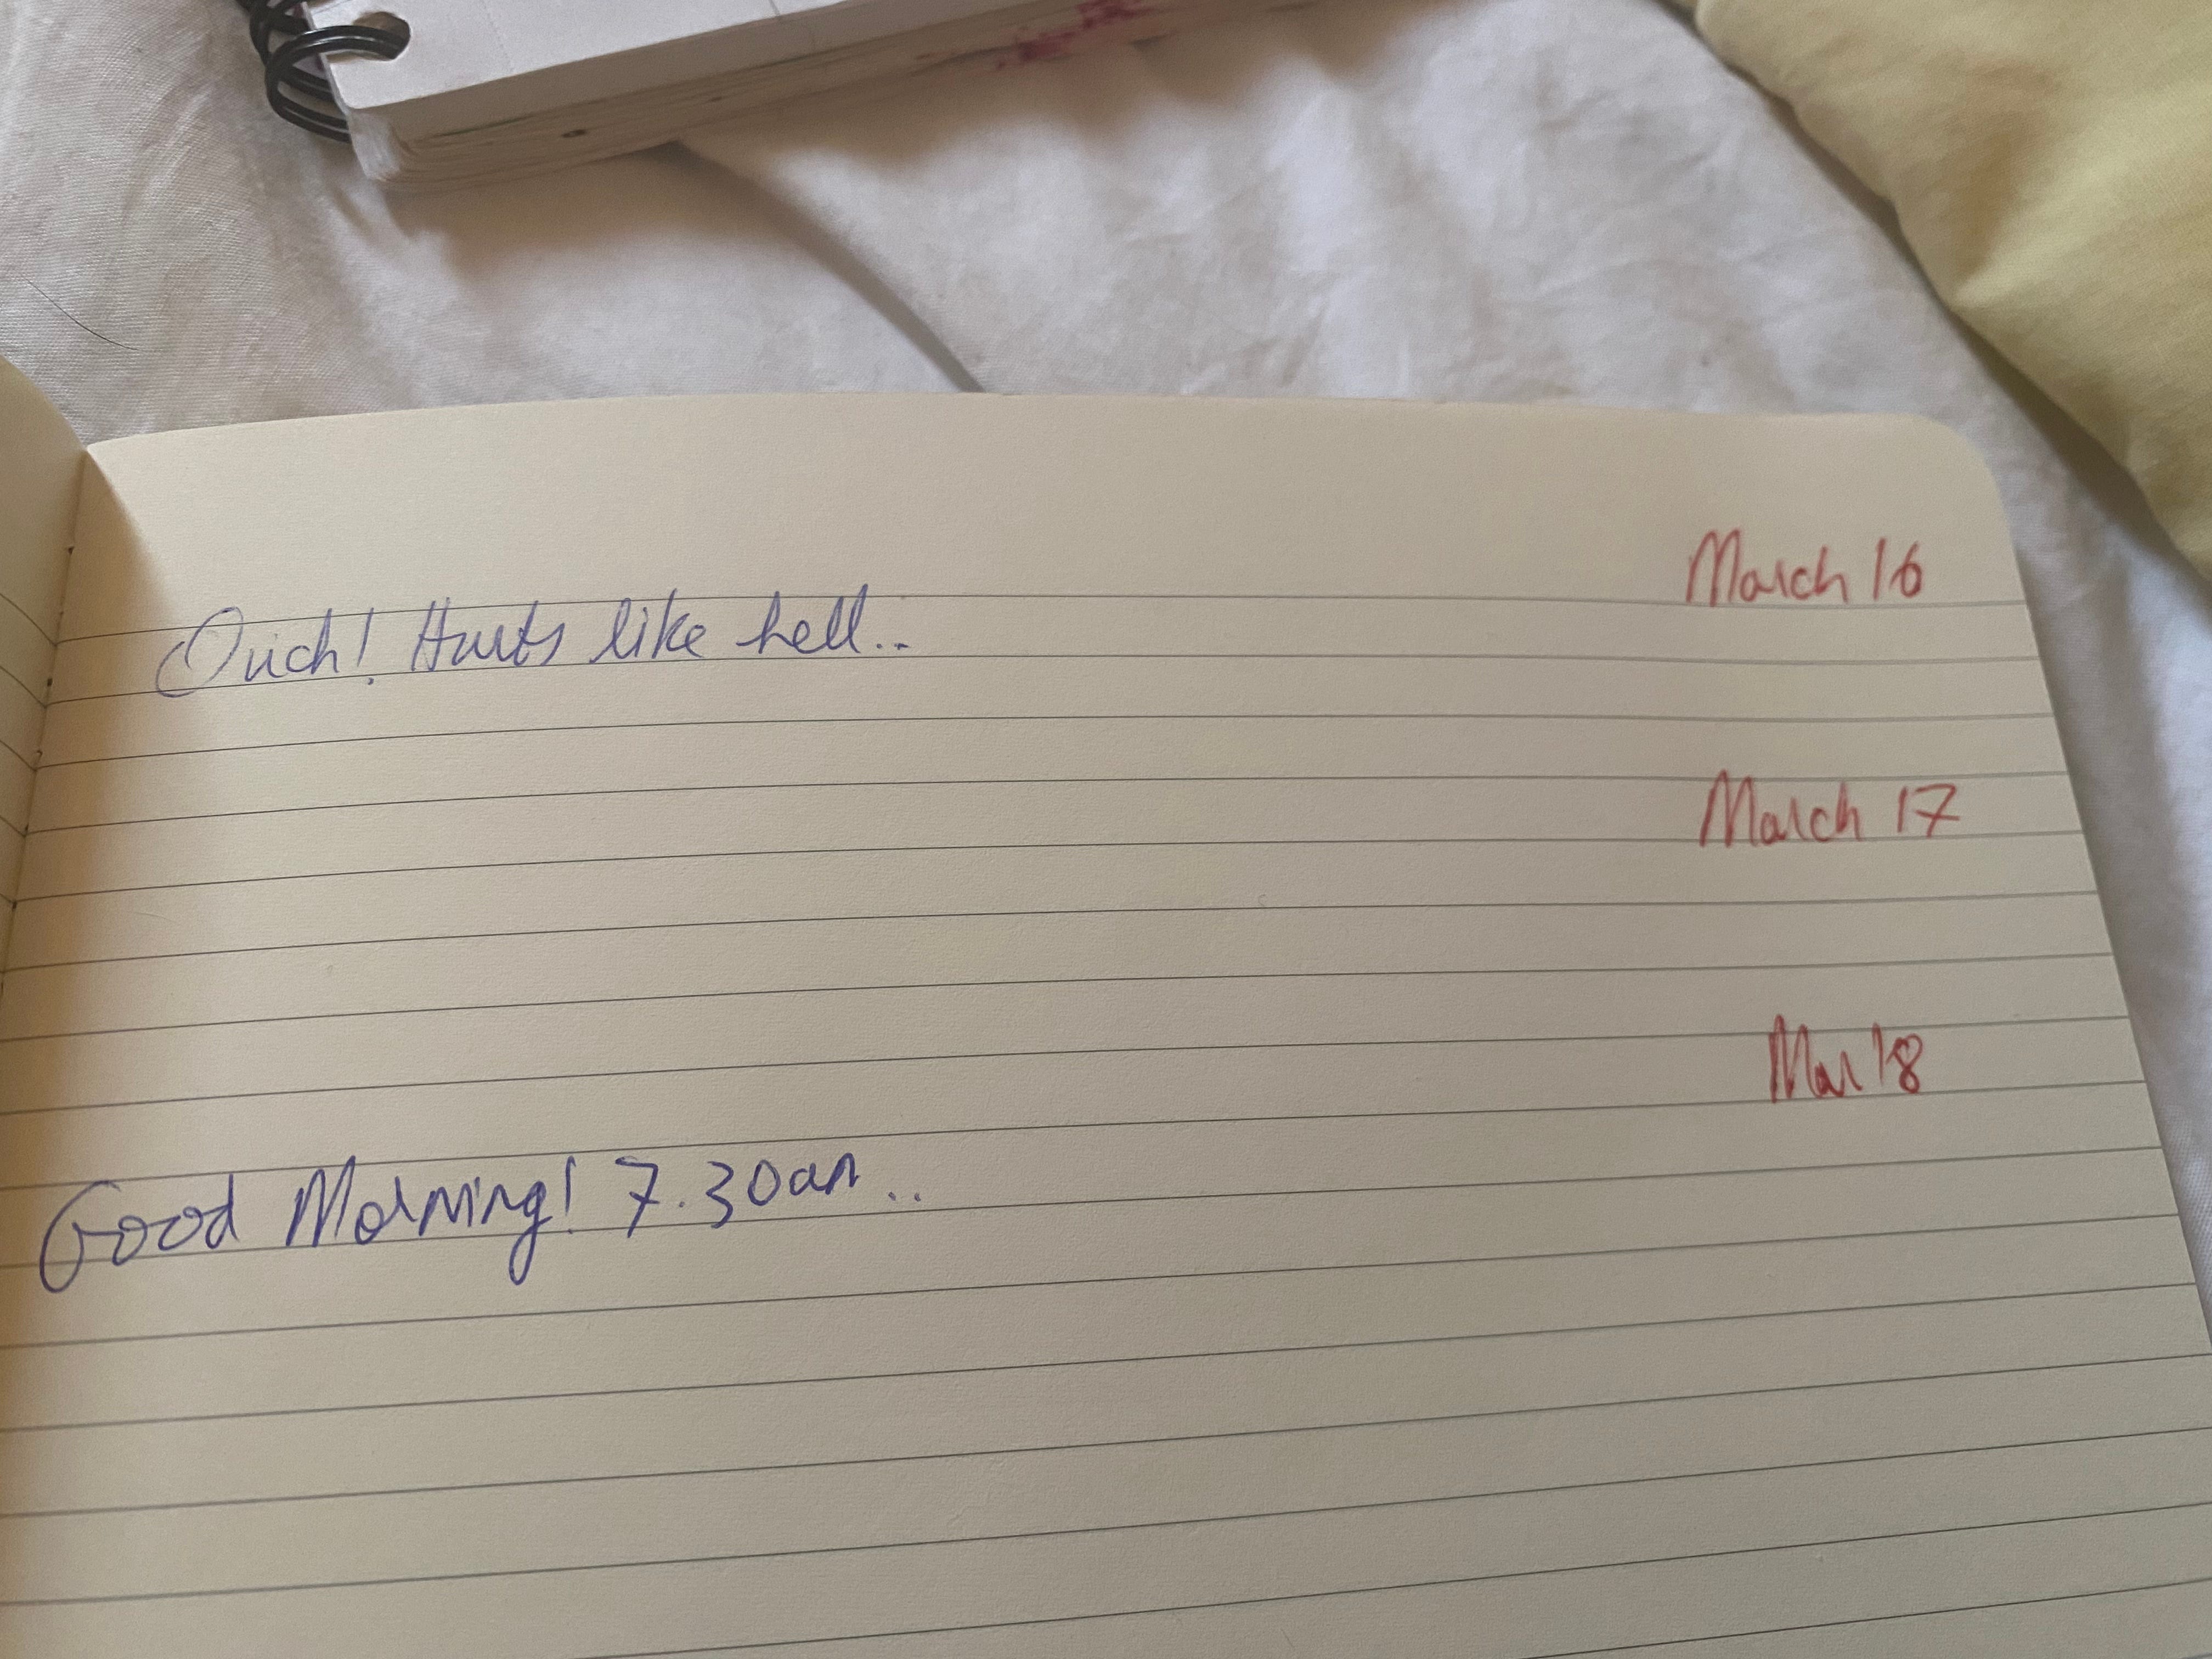 March 16
Ouch! Hurts like hell..
March 17
Mar 18
Good Morning! 7.30am..